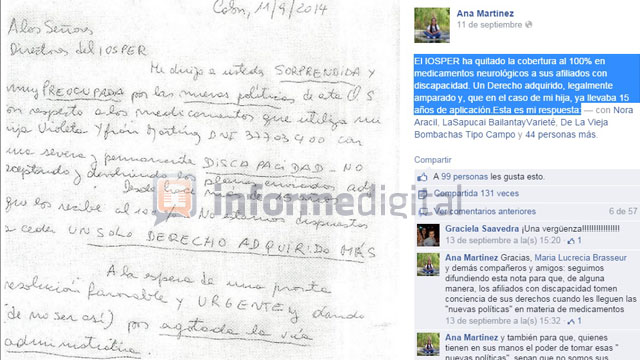 Colon, 11/9/2014
A los Señores
Directivos del IOSPER
Me dirijo a ustedes SORPRENDIDA y
muy PREOCUPADA por las nuevas políticas de esta O.S
con respecto a los medicamentos que utiliza mi
hija Violeta DNI 37703400 con
una severa y permanente DISCAPACIDAD. NO
aceptando y devolviendo la planilla
desde hace más de
que los recibe al 100%. No estamos dispuestos
a ceder UN SOLO DERECHO ADQUIRIDO MÁS
A la espera de una pronta
resolución favorable y URGENTE y dando
(de no ser así) por agotada la vía
administrativa.
informedigital
Ana Martinez
11 de septiembre
El IOSPER ha quitado la cobertura al 100% en
medicamentos neurológicos a sus afiliados con
discapacidad. Un Derecho adquirido, legalmente
amparado y, que en el caso de mi hija, ya llevaba 15
años de aplicación.Esta es mi respuesta: — con Nora
Aracil, LaSapucai BailantayVarieté, De La Vieja
Bombachas Tipo Campo y 44 personas más.
Compartir
A 99 personas les gusta esto.
Compartido 131 veces
Ver comentarios anteriores 6 de 57
Graciela Saavedra ¡Una vergüenza!!!!!!!!!!!!!!!!
13 de septiembre a la(s) 15:20 · 1
Ana Martinez Gracias, Maria Lucrecia Brasseur
y demás compañeros y amigos: seguimos
difundiendo esta nota para que, de alguna
manera, los afiliados con discapacidad tomen
conciencia de sus derechos cuando les lleguen las
"nuevas políticas" en materia de medicamentos.
13 de septiembre a la(s) 15:32 · 1
Ana Martinez y también para que, quienes
tienen en sus manos el poder de tomar esas "
nuevas políticas" sepan que no somos sus